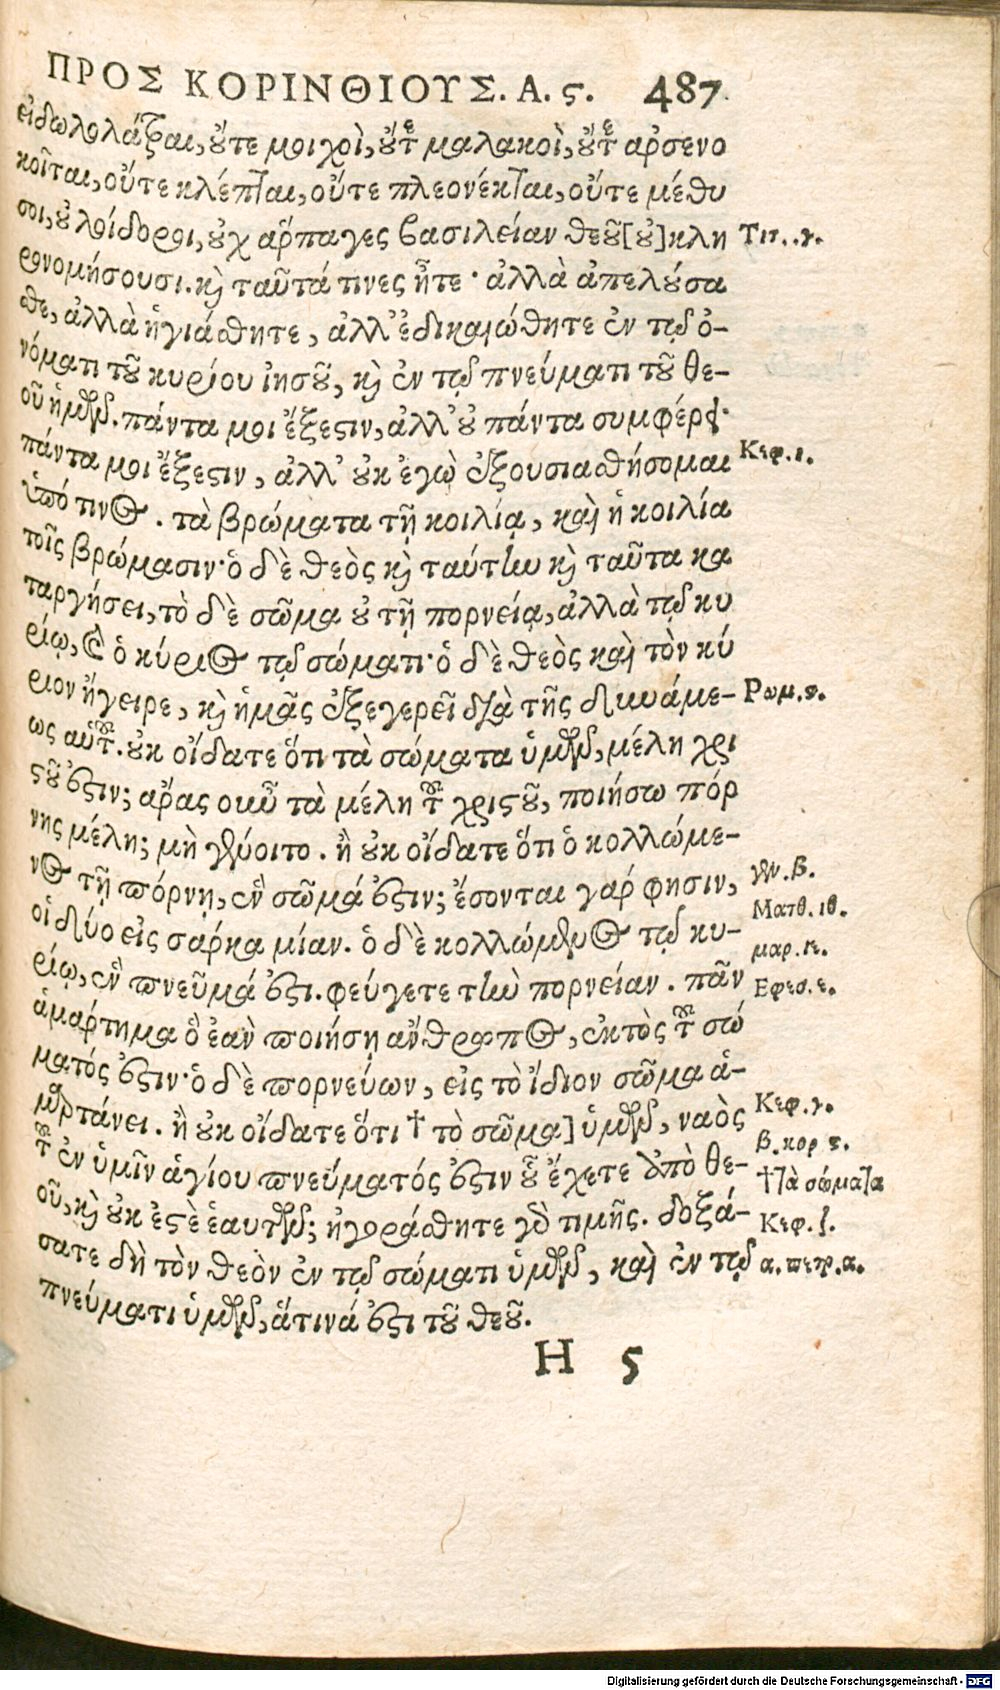 ΠΡΟΣ ΚΟΡΙΝΘΙΟΥΣ. Α. ς. 487
εἰδωλολάτραι, οὔτε μοιχοὶ, οὔτε μαλακοὶ, οὔτε ἀρσενο
κοῖται, οὔτε κλέπται, οὔτε πλεονέκται, οὔτε μέθυ
σοι, οὐ λοίδοροι, οὐχ ἅρπαγες βασιλείαν θεοῦ [οὐ] κλη
Τιτ. .γ.
ρονομήσουσι. καὶ ταῦτά τινες ἦτε· ἀλλὰ ἀπελούσα
σθε, ἀλλὰ ἡγιάσθητε, ἀλλ' ἐδικαιώθητε ἐν τῷ ὀ-
νόματι τοῦ κυρίου ἰησοῦ, καὶ ἐν τῷ πνεύματι τοῦ θε-
οῦ ἡμῶν. πάντα μοι ἔξεστιν, ἀλλ' οὐ πάντα συμφέρει·
πάντα μοι ἔξεστιν, ἀλλ' οὐκ ἐγὼ ἐξουσιασθήσομαι
Κεφ. ι.
ὑπό τινος. τὰ βρώματα τῇ κοιλίᾳ, καὶ ἡ κοιλία
τοῖς βρώμασιν· ὁ δὲ θεὸς καὶ ταύτην καὶ ταῦτα κα
ταργήσει, τὸ δὲ σῶμα οὐ τῇ πορνείᾳ, ἀλλὰ τῷ κυ
ρίῳ, καὶ ὁ κύριος τῷ σώματι· ὁ δὲ θεὸς καὶ τὸν κύ
ριον ἤγειρε, καὶ ἡμᾶς ἐξεγερεῖ διὰ τῆς δυνάμε-
Ρωμ. ς.
ως αὐτοῦ. οὐκ οἴδατε ὅτι τὰ σώματα ὑμῶν, μέλη χρι
στοῦ ἐστιν; ἄρας οὖν τὰ μέλη τοῦ χριστοῦ, ποιήσω πόρ
νης μέλη; μὴ γένοιτο. ἢ οὐκ οἴδατε ὅτι ὁ κολλώμε-
νος τῇ πόρνῃ, ἓν σῶμά ἐστιν; ἔσονται γάρ φησιν,
γεν. β.
Ματθ. ιθ.
οἱ δύο εἰς σάρκα μίαν. ὁ δὲ κολλώμενος τῷ κυ-
μαρ. ι.
ρίῳ, ἓν πνεῦμά ἐστι. φεύγετε τὴν πορνείαν. πᾶν
Εφεσ. ε.
ἁμάρτημα ὃ ἐὰν ποιήσῃ ἄνθρωπος, ἐκτὸς τοῦ σώ
ματός ἐστιν· ὁ δὲ πορνεύων, εἰς τὸ ἴδιον σῶμα ἁ-
μαρτάνει. ἢ οὐκ οἴδατε ὅτι † τὸ σῶμα] ὑμῶν, ναὸς
Κεφ. γ.
β. κορ ς.
τοῦ ἐν ὑμῖν ἁγίου πνεύματός ἐστιν οὗ ἔχετε ἀπὸ θε-
† τὰ σώματα
οῦ, καὶ οὐκ ἐστὲ ἑαυτῶν; ἠγοράσθητε γὰρ τιμῆς. δοξά-
Κεφ. ζ.
σατε δὴ τὸν θεὸν ἐν τῷ σώματι ὑμῶν, καὶ ἐν τῷ
α. πετρ. α.
πνεύματι ὑμῶν, ἅτινά ἐστι τοῦ θεοῦ.
H 5
Digitalisierung gefördert durch die Deutsche Forschungsgemeinschaft - DFG